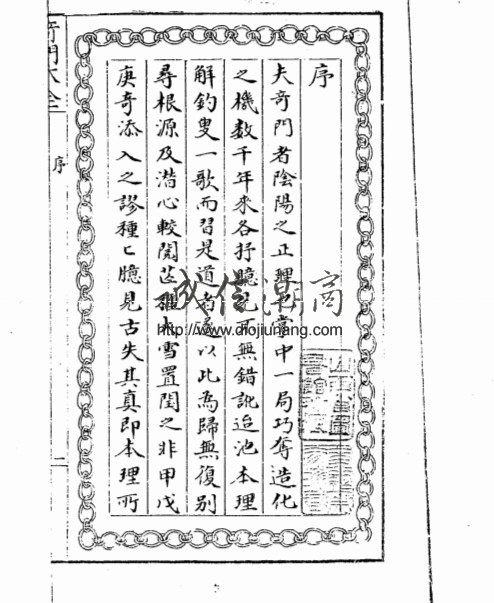 序
夫奇門者陰陽之正理也掌中一局巧奪造化
之機數千年來各抒臆見不無錯訛迨池本理
解釣叟一歌而習是道者遂以此為歸無復別
尋根源及潛心較閱茲雄大雪置閏之非甲戊
庚奇添入之謬種匕臆見古失其真即本理所
奇門大全
序
一
誠信潮商
http://www.diojiuhang.com